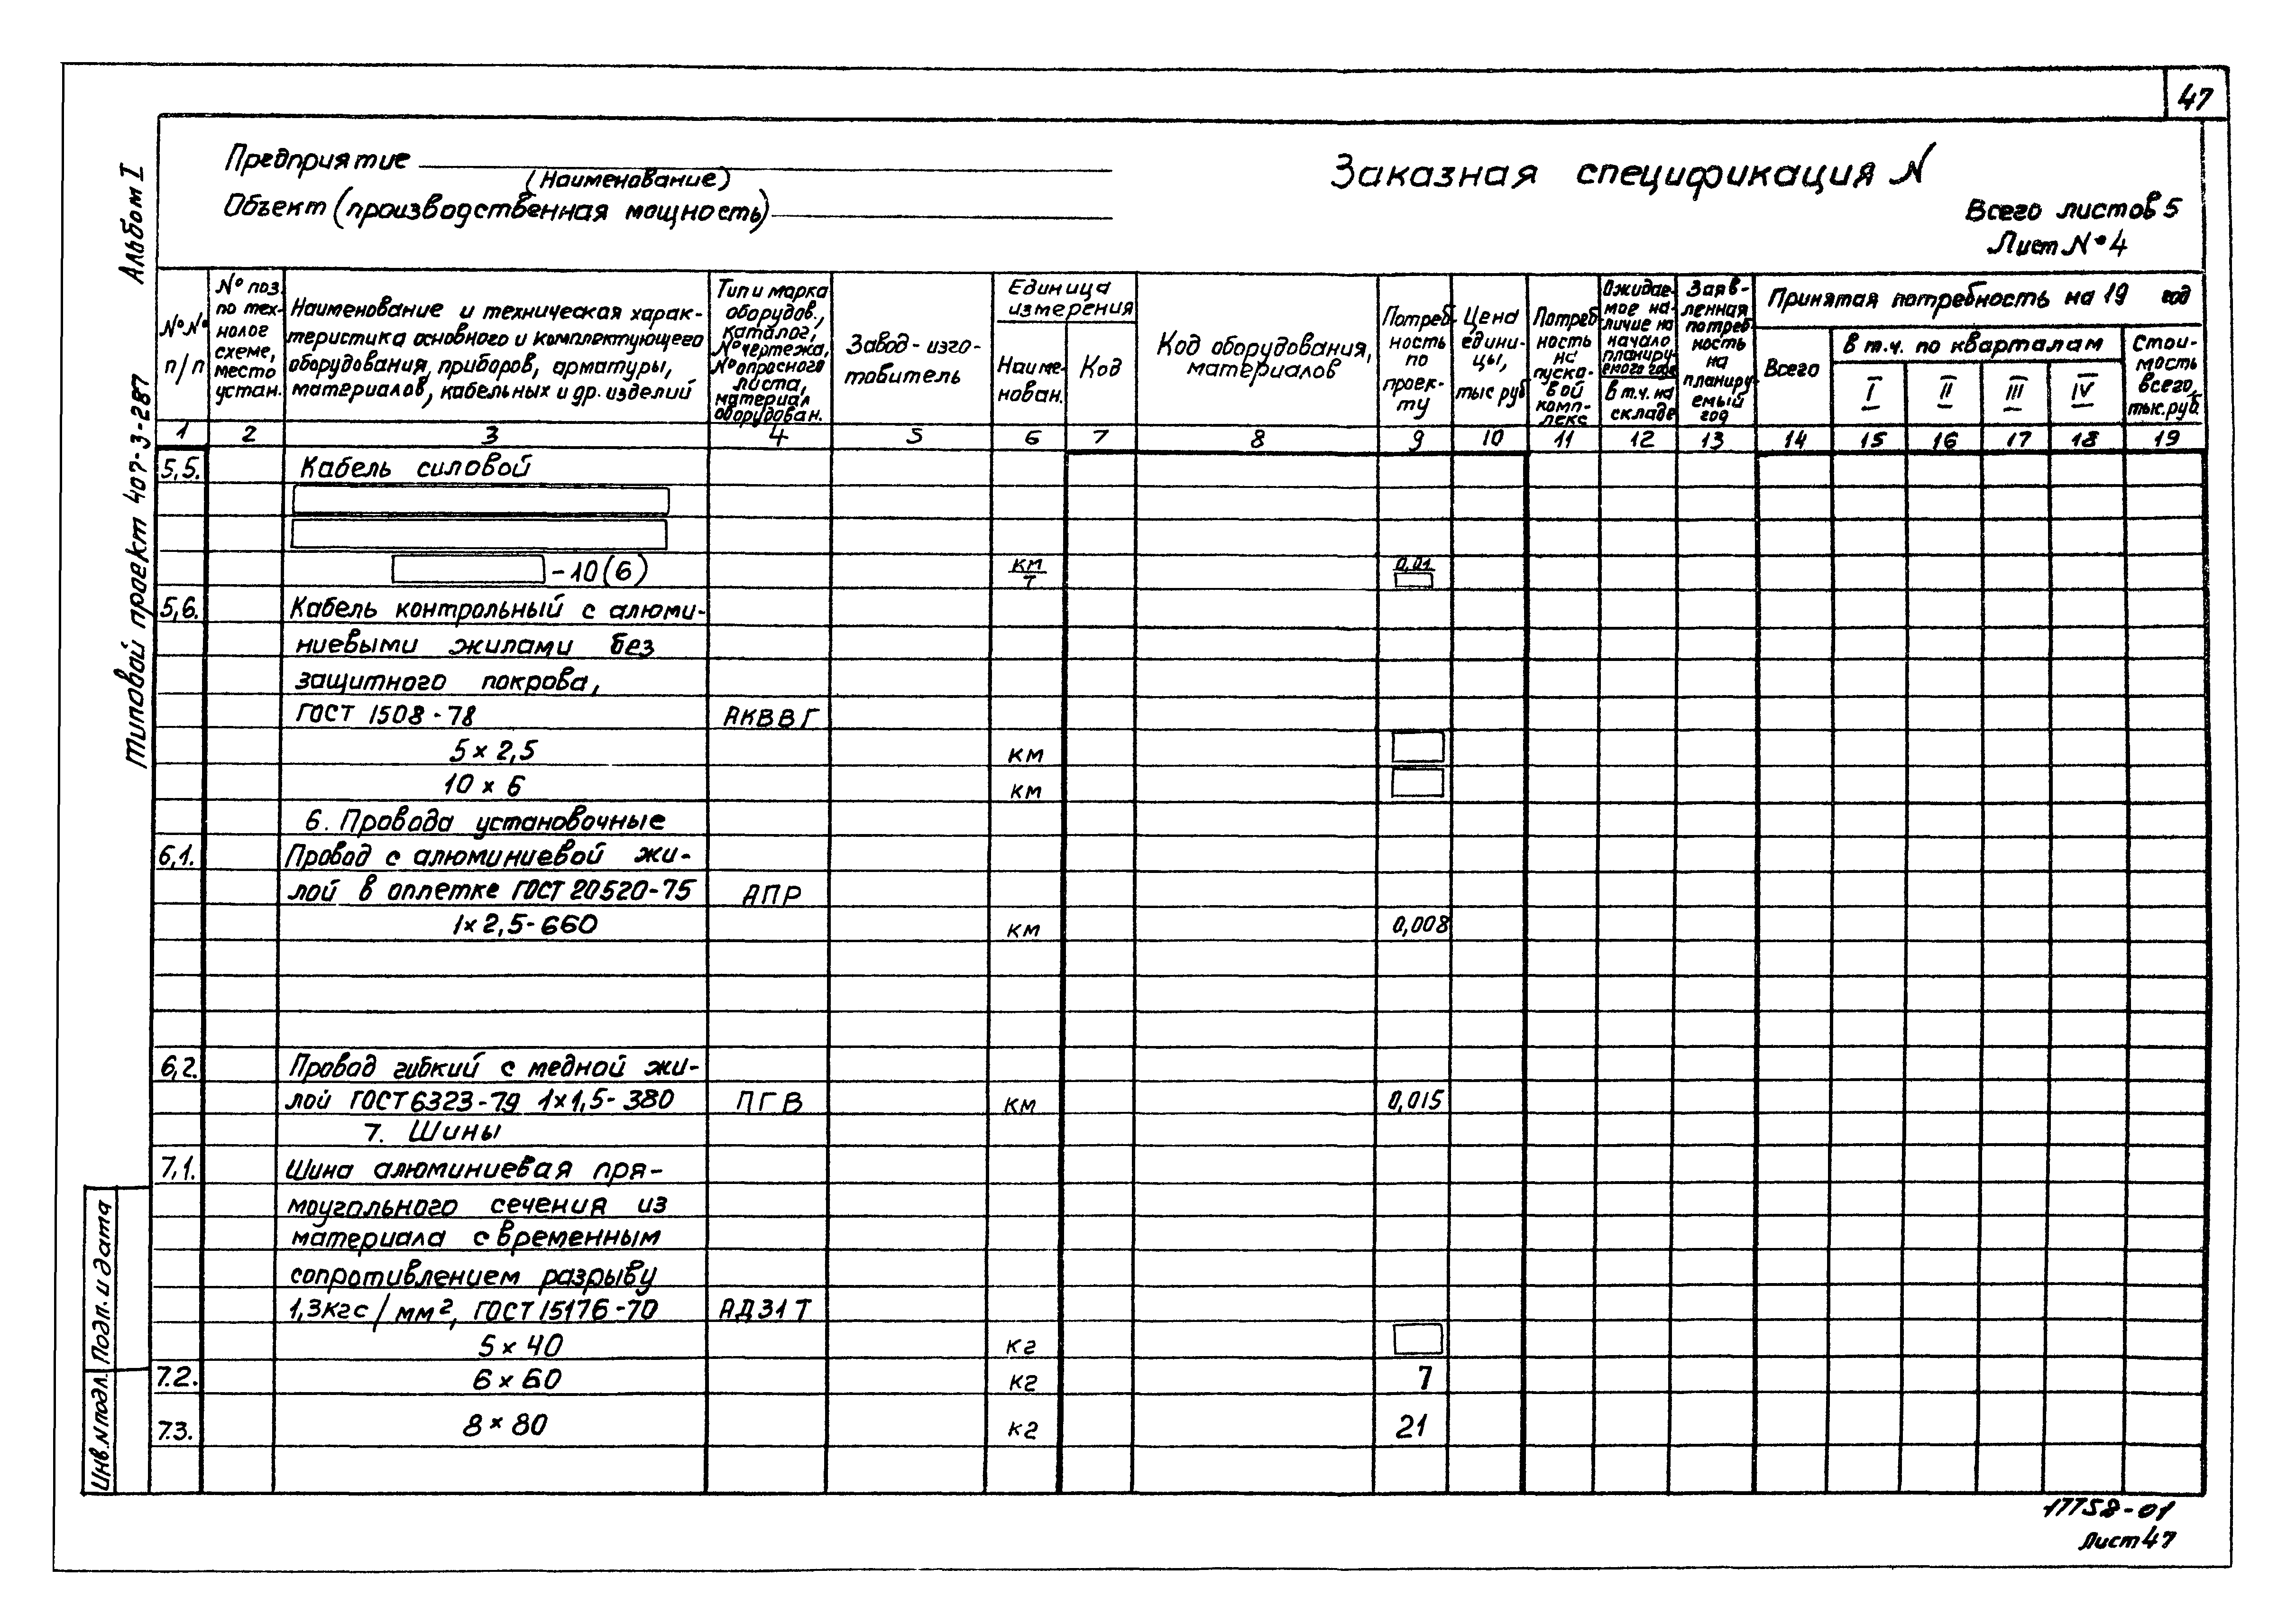 47
Предприятие
(Наименование)
Объект (производственная мощность)
Заказная спецификация N
Всего листов 5
Лист № 4
Альбом I
Типовой проект 407-3-287
№№ п/п
№ поз. по технолог схеме, место устан.
Наименование и техническая харак-
теристика основного и комплектующего
оборудования, приборов, арматуры,
материалов, кабельных и др. изделий
Тип и марка
оборудов.,
каталог,
№ чертежа,
№ опросного
листа,
материал
оборудован.
Завод-изго-
товитель
Единица
измерения
Наиме-
нован.
Код
Код оборудования,
материалов
Потреб-
ность
по
проек-
ту
Цена
едини-
цы,
тыс руб
Потреб-
ность
на
пуско-
вой
комп-
лекс
Ожидае-
мое на-
личие на
начало
планиру-
емого года
в т.ч. на
складе
Заяв-
ленная
потреб-
ность
на
планиру-
емый
год
Принятая потребность на 19 год
Всего
в т.ч. по кварталам
I II III IV
Стои-
мость
всего,
тыс.руб.
1 2 3 4 5 6 7 8 9 10 11 12 13 14 15 16 17 18 19
5,5. Кабель силовой
-10(6) км/т 0,01
5,6. Кабель контрольный с алюми-
ниевыми жилами без
защитного покрова,
ГОСТ 1508-78 АКВВГ
5 х 2,5 км
10 х 6 км
6. Провода установочные
6,1. Провод с алюминиевой жи-
лой в оплетке ГОСТ 20520-75 АПР
1х2,5-660 км 0,008
6,2. Провод гибкий с медной жи-
лой ГОСТ 6323-79 1х1,5-380 ПГВ км 0,015
7. Шины
7,1. Шина алюминиевая пря-
моугольного сечения из
материала с временным
сопротивлением разрыву
1,3кгс/мм², ГОСТ 15176-70 АД31Т
5 х 40 кг
7.2. 6 х 60 кг 7
7.3. 8 х 80 кг 21
Инв.N подл. Подп. и дата
17758-01
Лист 47